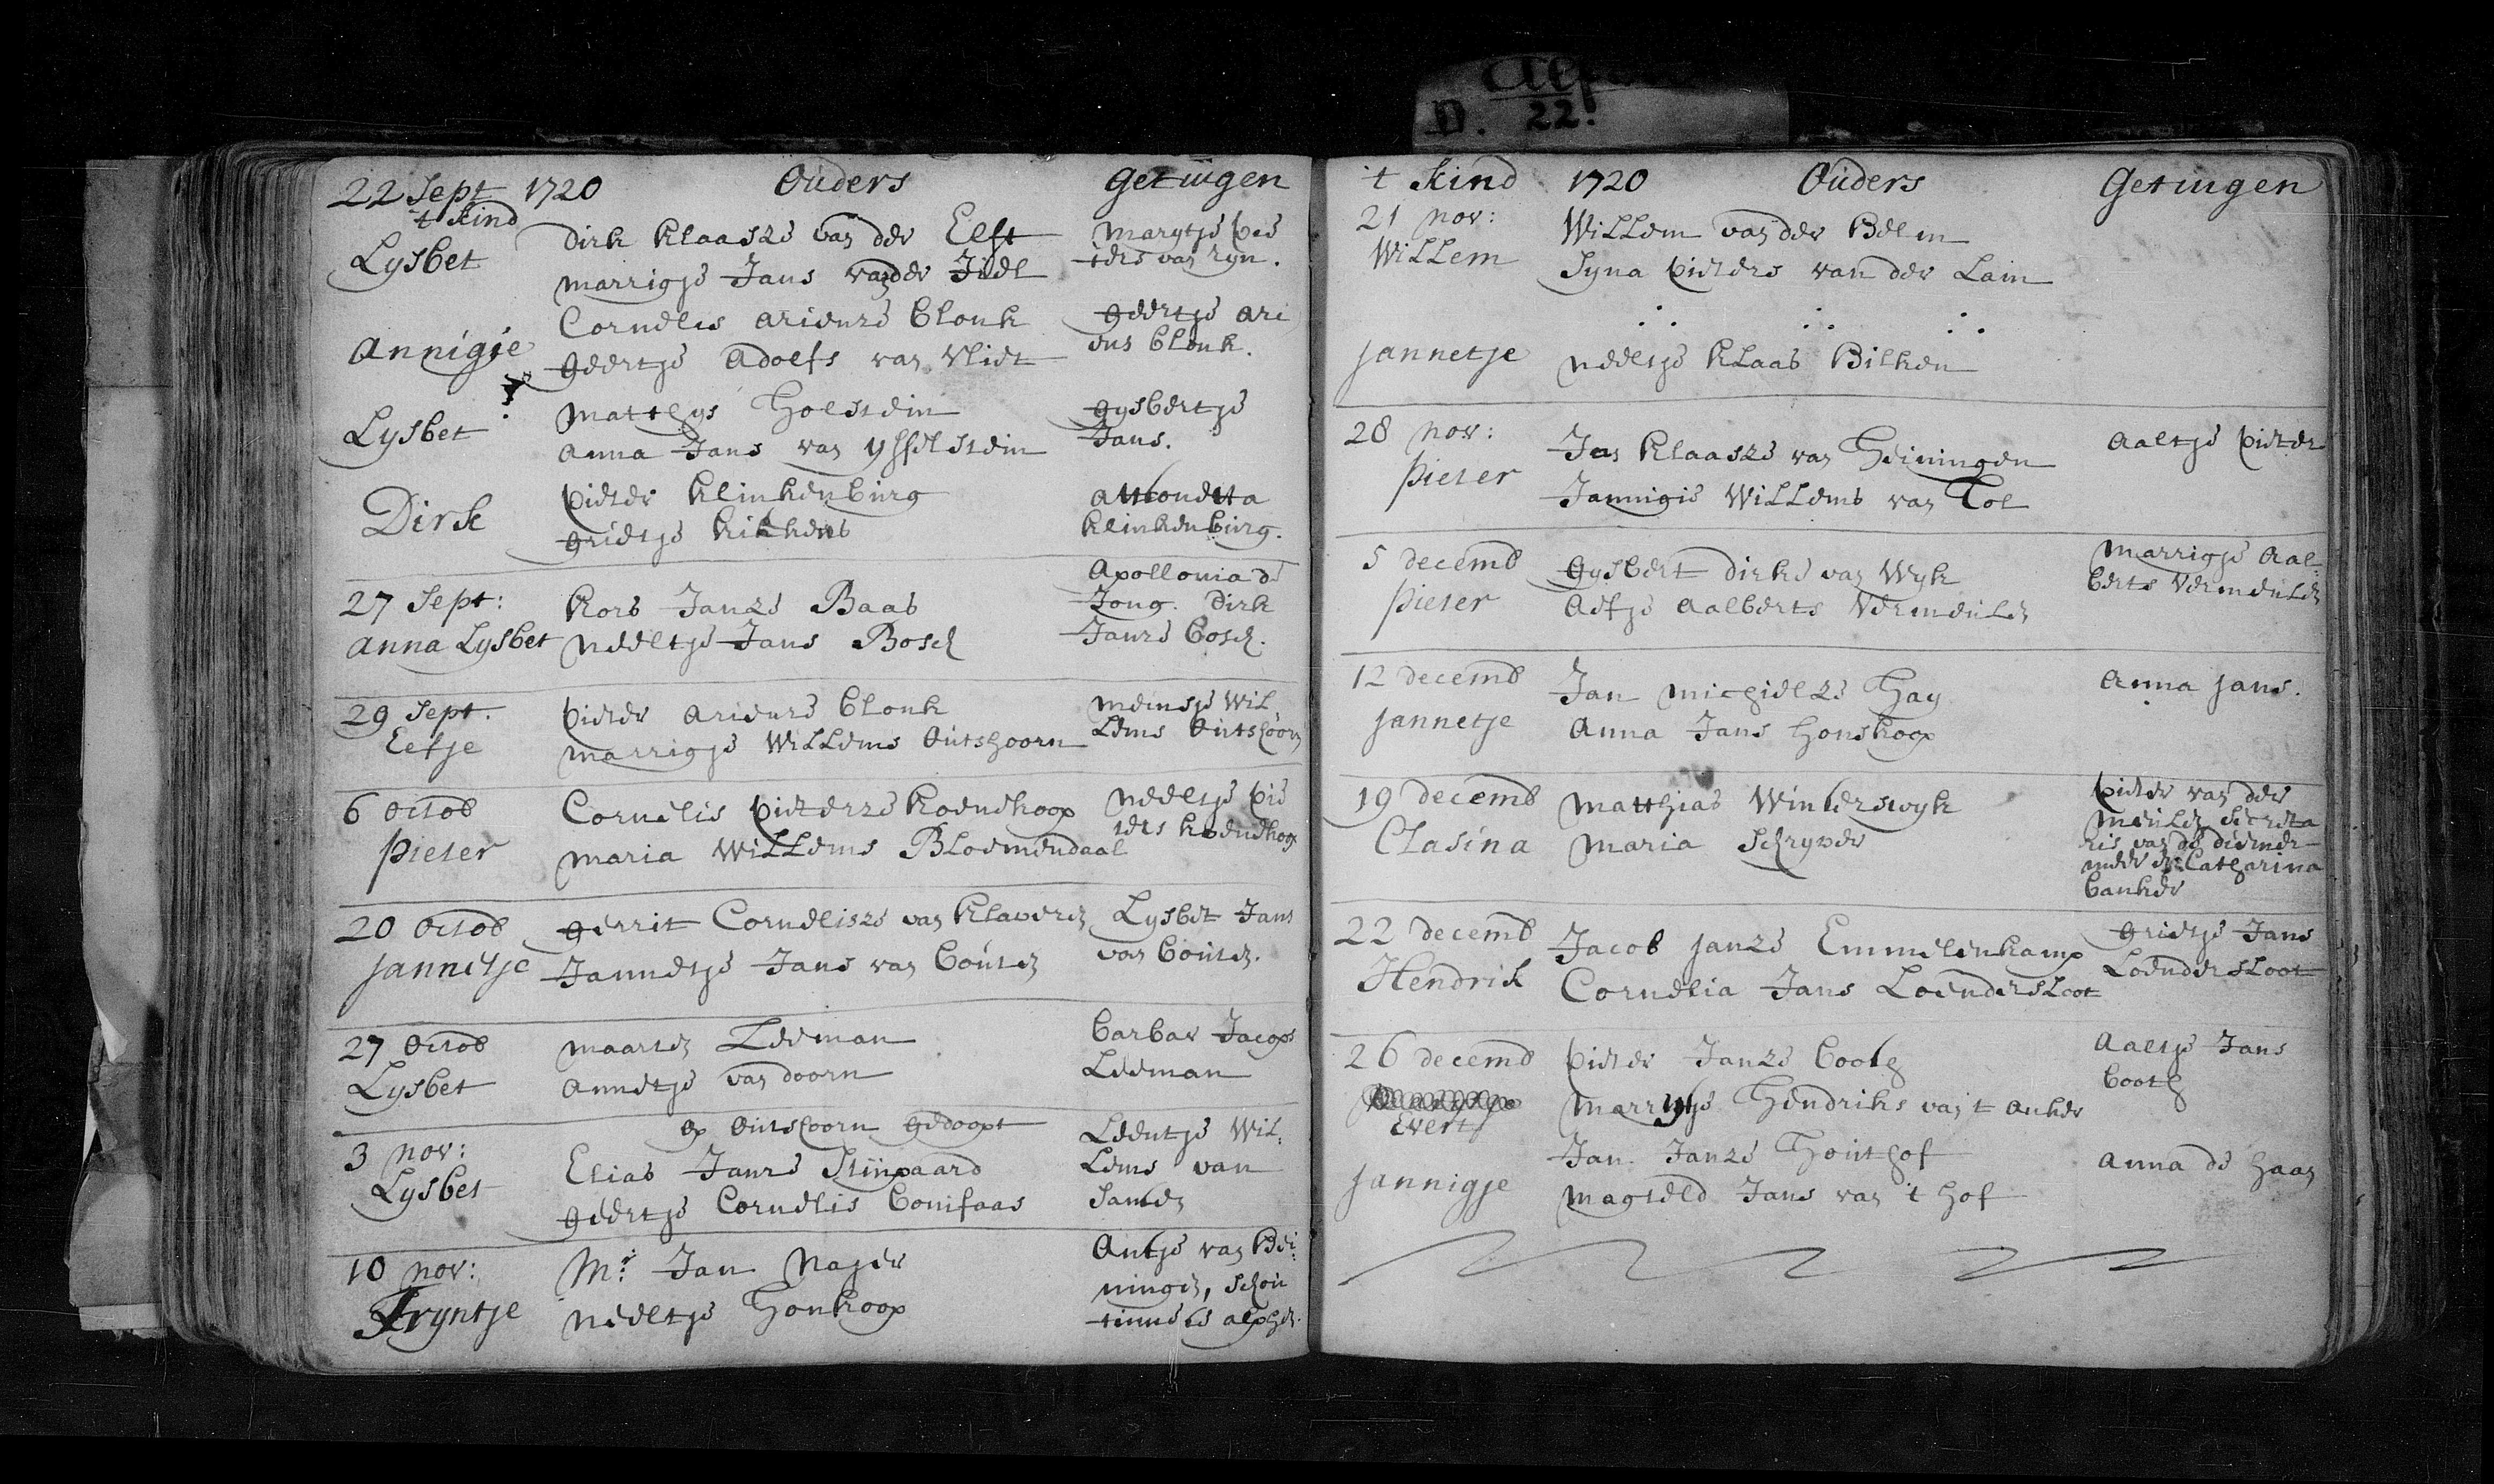 D. 22.
22 Sept 1720 Ouders Getuigen
't kind
Lysbet
Dirk Klaasze van der Elft
marrigje Jans vander
marytje Pie
ters van ryn.
Annigje
Cornelis Ariense Blonk
geertje Adolfs van Vliet
geertje Ari
ens Blonk.
Lysbet
Matthys Holstein
Anna Jans van ysselstein
gysbertje
Jans.
Dirk
Pieter Klinkenburg
grietje
Klinkenburg.
27 Sept:
Anna Lysbet
Kors Janze Baas
neeltje Jans Bosch
Apollonia de
Jong. Dirk
Janze Bosch.
29 Sept.
Eefje
Pieter Ariense Blonk
marrigje Willems Outshoorn
meinsje Wil
lems Outshoorn
6 Octob
Pieter
Cornelis Pieterze Koenekoop
maria Willems Bloemendaal
neeltje Pie
ters Koenekoop
20 Octob
Jannetje
gerrit Cornelisze van Klaveren
Jannetje Jans van Houten
Lysbet Jans
van Houten.
27 Octob
Lysbet
maarten Leeman
Annetje van doorn
Barbar Jacops
Leeman
op Outshoorn gedoopt
3 nov:
Lysbet
Elias Janze
geertje Cornelis Bonifaas
Leentje Wil:
lems van
10 nov:
Tryntje
Mr: Jan Najer
neeltje Honkoop
Antje van
ningen, Schou
tinne te alphen.
't kind 1720 Ouders Getuigen
21 nov:
Willem
Willem van der Helm
Syna Pieters van der Lain
Jannetje
neeltje Klaas Bilken
28 nov:
Pieter
Jan Klaasze van Heiningen
Jannigie Willems van Tol
Aaltje Pieters
5 decemb
Pieter
Gysbert dirkse van Wyk
Aefje Aalberts Vermeulen
marrigje Aal
berts Vermeulen
12 decemb
Jannetje
Jan michielze Hay
Anna Jans Honskoop
Anna Jans.
19 decemb
Clasina
Matthias Winterswyk
Maria Schryver
Pieter van der
meulen secreta
ris van de
Catharina
Banker
22 decemb
Hendrik
Jacob Janze Emmelenkamp
Cornelia Jans Loendersloot
grietje Jans
Loendersloot
26 decemb
Evert
Pieter Janze Booth
Marrytje Hendriks van 't anker
Aaltje Jans
Booth
Jannigje
Jan Janze Houthof
magteld Jans van 't hof
Anna de haan